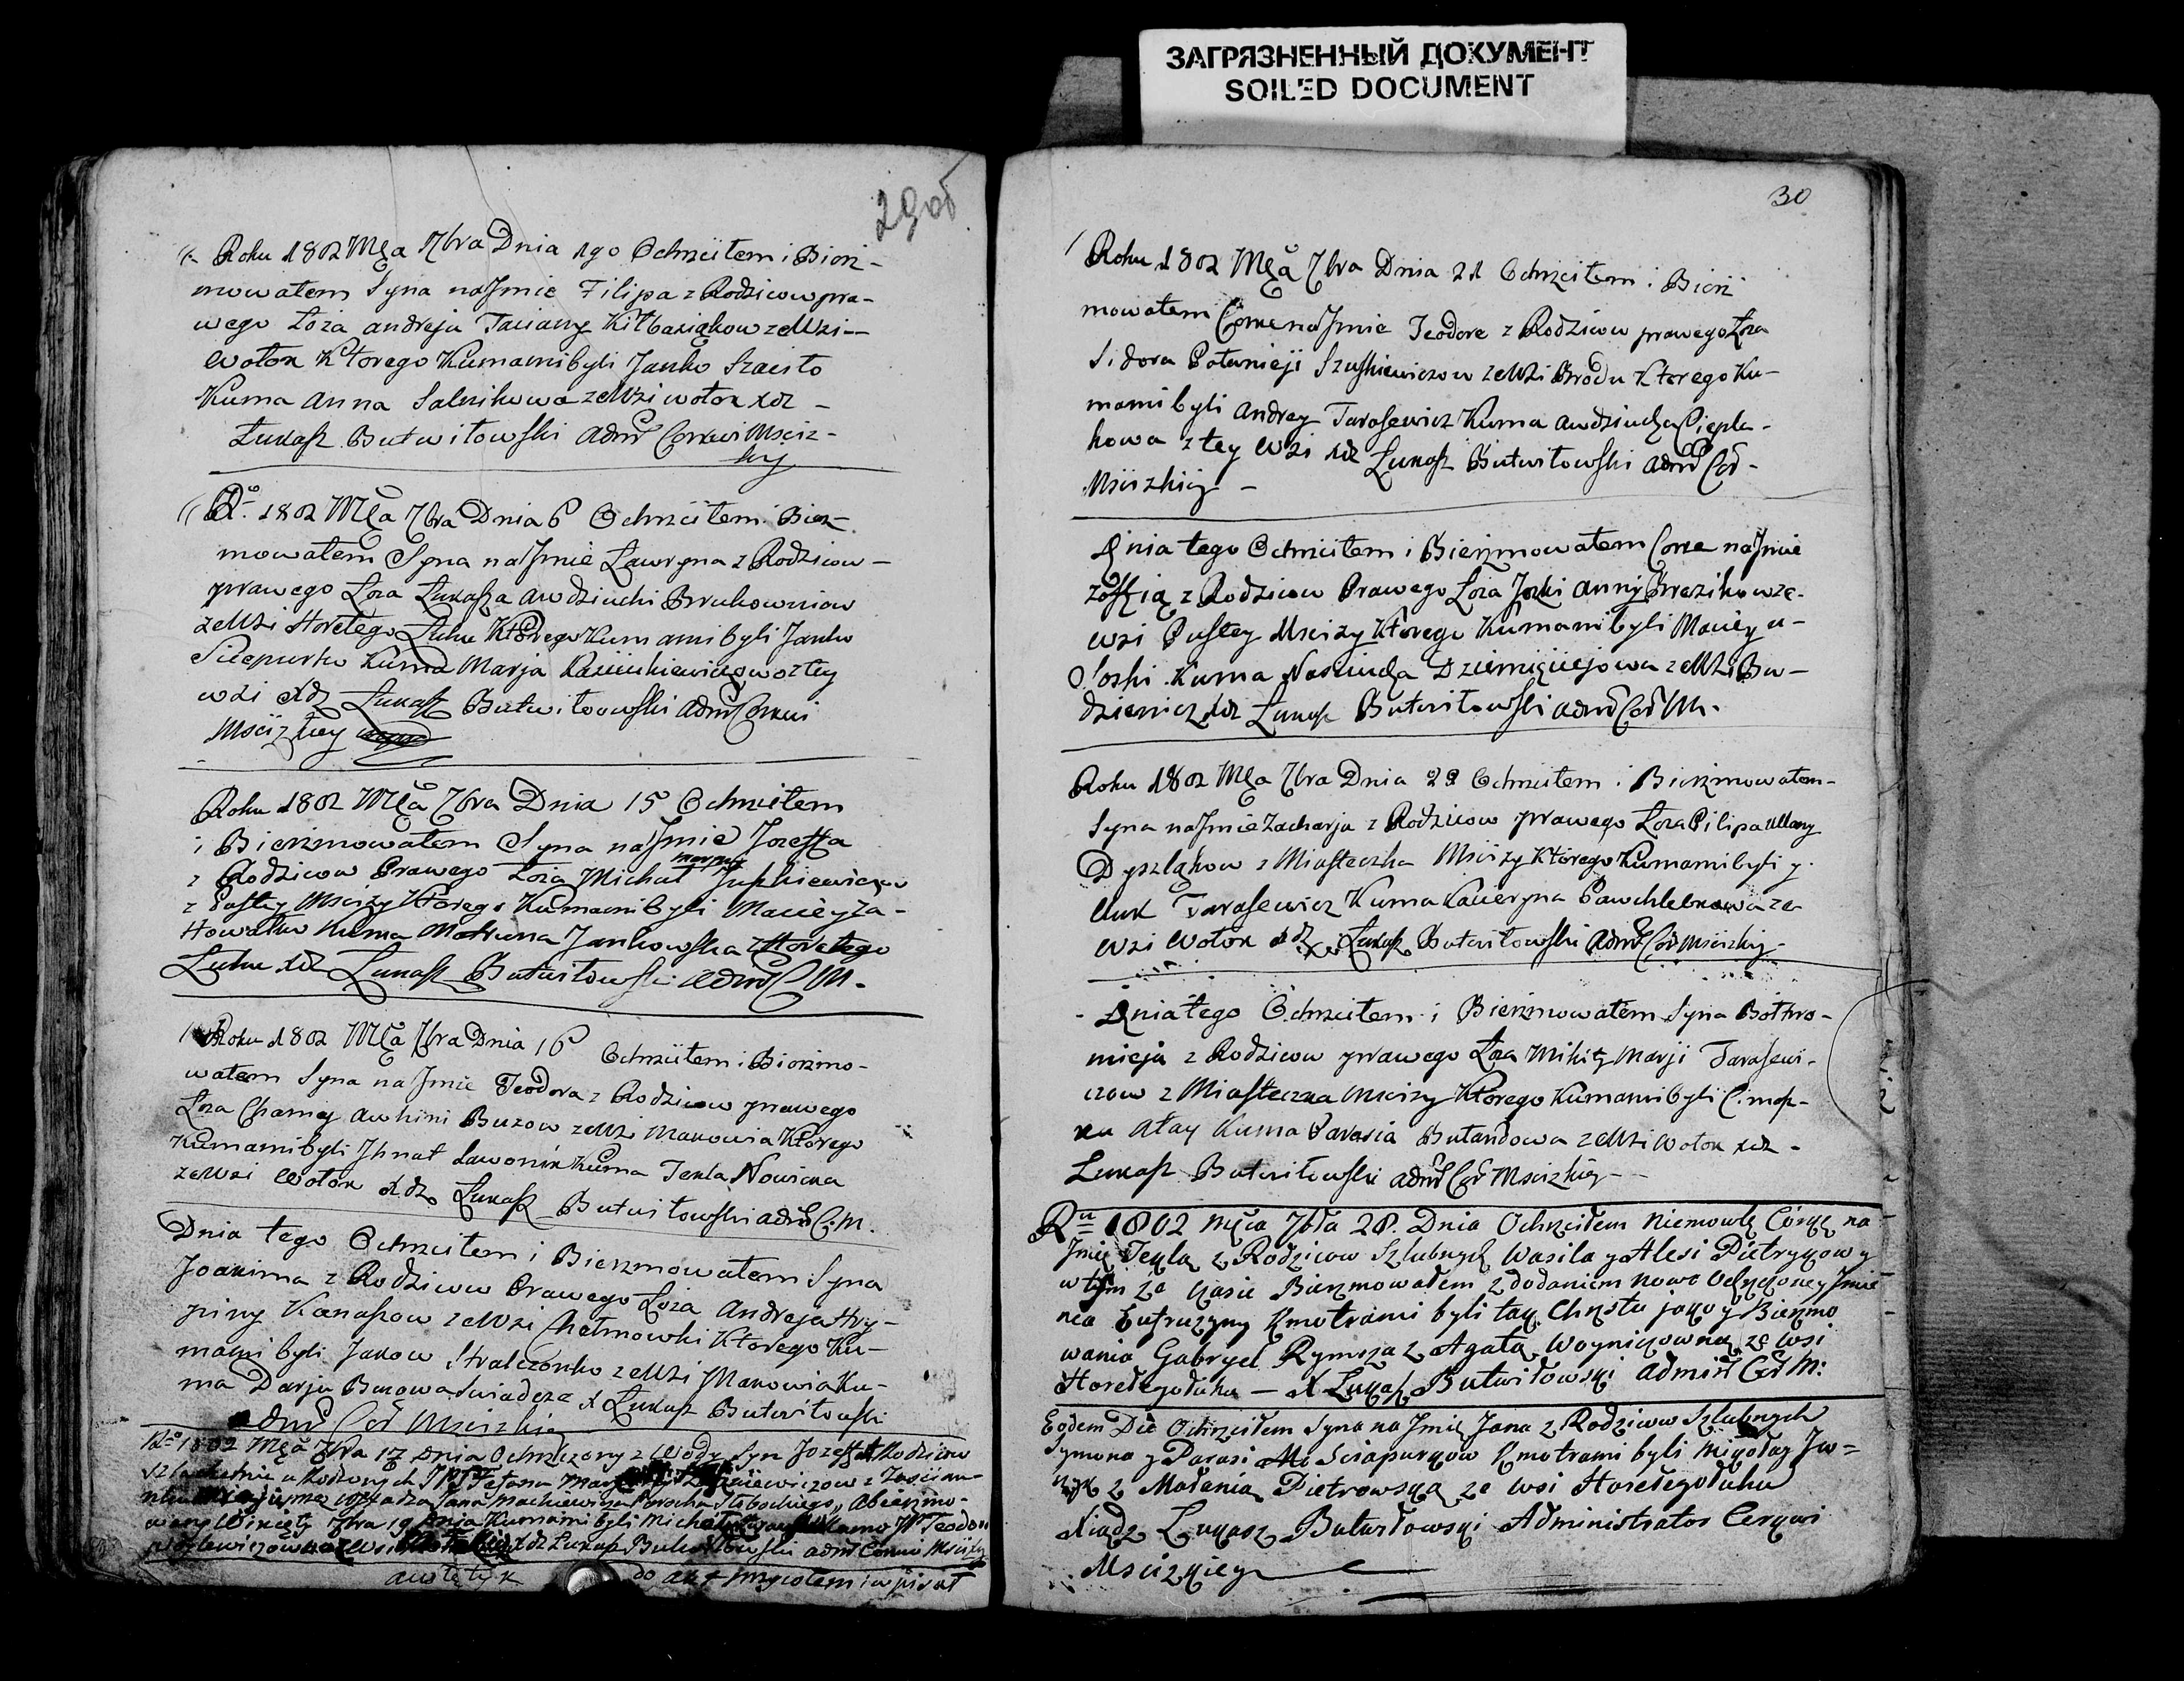 ЗАГРЯЗНЕННЫЙ ДОКУМЕНТ
SOILED DOCUMENT
29об
Roku 1802 Mca 7bra Dnia 1go Ochrzciłem i Bierz-
mowałem Syna na Jmie Filipa z Rodzicow pra-
wego Łoża andreja Taciany Kiłbasiąkow ze Wsi
Wołok Ktorego Kumami byli Janko Szacito
Kuma Anna Salnikowa ze Wsi Wołok xdz
Łukasz Butwiłowski admr Cerkwi Mściz-
kiy
Ro 1802 Mca 7bra Dnia 6 Ochrzciłem i Bierz-
mowałem Syna na Jmie Ławryna z Rodzicow
prawego Łoza Łukasza awdziuchi Brukowniow
ze Wsi Horełego Łuhu Którego Kumami byli Janko
Sciepurko Kuma Marja z tey
wsi xdz Łukasz Butwiłowski admr Cerkwi
Mścizkiey
Roku 1802 Mca 7bra Dnia 15 Ochrzciłem
i Bierzmowałem Syna na Jmie Jozeffa
z Rodzicow Prawego Łoża Michał Marjny Jupkiewiczow
z Pustey Mscizy Którego Kumami byli Maciey Za-
Howałko Kuma Matruna Jankowska z Horełego
Łuhu xdz Łukasz Butwiłowski admr C M.
Roku 1802 Mca 7bra Dnia 16 Ochrzciłem i Bierzmo-
wałem Syna na Jmie Teodora z Rodzicow prawego
Łoza Chamy Awhini Buzow ze Wsi Makowia Którego
Kumami byli Jhnat Ławonik Kuma Tekla Nowicka
ze Wsi Wołok xdz Łukasz Butwiłowski admr C. M.
Dnia tego Ochrzciłem i Bierzmowałem Syna
Joakima z Rodzicow Prawego Łoża Andreja Hry-
piny Kanaszow ze Wsi Chełmowki Ktorego Ku-
mami byli Jakow Stralczonko ze Wsi Makowia Ku-
ma Darja Buzowa Swiadczę x Łukasz Butwiłowski
admr Cer Mscizkiey
Ro 1802 Mca 7bra 17 Dnia Ochrzczony z Wody Syn Jozeff z Rodzicow
Jana Mackiewicza Parocha a bierzmo-
7bra 19 Dnia Kumami byli Michał
xdz Łukasz Butwiłowski admr Cerkwi Mscizkiey
30
Roku 1802 Mca 7bra Dnia 21 Ochrzciłem i Bierz
mowałem Corke na Jmie Teodore z Rodzicow prawego Łoza
Sidora Połonieji Szuszkiewiczow ze Wsi Brodu Ktorego Ku-
mami byli Andrey Tarasewicz Kuma awdziucha Ciepla-
kowa z tey Wsi xdz Łukasz Butwiłowski admr Cer-
Mscizkiey
Dnia tego Ochrzciłem i Bierzmowałem Corke na Jmie
Zoffią z Rodzicow Prawego Łoża Joski Anny Brezikow ze
wsi Pustey Mscizy Ktorego Kumami byli Maciey
Kuma Nasciucha ze Wsi Bu-
dzienicz xdz Łukasz Butwiłowski admr Cer M.
Roku 1802 Mca 7bra Dnia 29 Ochrzciłem i Bierzmowałem
Syna na Jmie Zacharja z Rodzicow prawego Łoza Pilipa Ullany
Dyszlakow z Miasteczka Mscizy Ktorego Kumami byli
Tarasewicz Kuma Kacieryna Pawchlebkowa ze
Wsi Wołok xdz Łukasz Butwiłowski admr Cer Mscizkiey
Dnia tego Ochrzciłem i Bierzmowałem Syna Bołtro-
mieja z Rodzicow prawego Łoza Mikity Marji Tarasewi-
czow z Miasteczka Mscizy Ktorego Kumami byli Cimosz-
ka Ałay Kuma Parasia Butandowa ze Wsi Wołok xdz
Łukasz Butwiłowski admr Cer Mscizkiey
Ru 1802 Mca 7bra 28. Dnia Ochrzciłem Niemowlę Córkę na
Jmię Teklą z Rodzicow Szlubnych Wasila y Alesi Pietrykow y
w tym ze czasie Bierzmowałem z dodaniem nowo Jmie
nia Eufruzyny Kmotrami byli tak Chrztu jako y Bierzmo
wania Gabryel Rymsza z Agatą Woynikowną ze Wsi
Horełegołuhu — X Łukasz Butwiłowski Admistr Cer M:
Eodem Die Ochrzciłem Syna na Jmię Jana z Rodzicow Szlubnych
Symona y Parasi Sciapurkow Kmotrami byli Mikołay Jw=
z Małanią Pietrowską ze Wsi Horełegołuhu
Xiądz Łukasz Butwiłowski Administrator Cerkwi
Mscizkiey